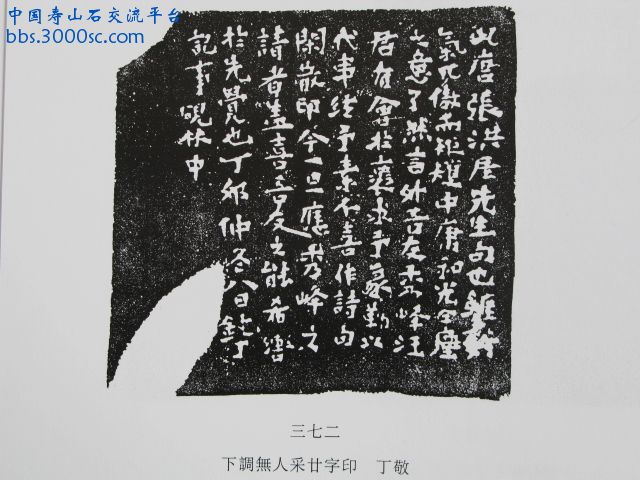 中国寿山石交流平台
bbs.3000sc.com
此唐張洪厓先生句也雖辭
氣兀傲而中庸和光塵
之意了然言外吾友秀峰汪
君有會於衷求予篆勒以
代事予素不喜作詩句
閑散印今一旦應秀峰之
請者蓋喜吾友之能希
於先覺也丁卯仲冬八日鈍丁
記事硯林中
三七二
下調無人采廿字印 丁敬